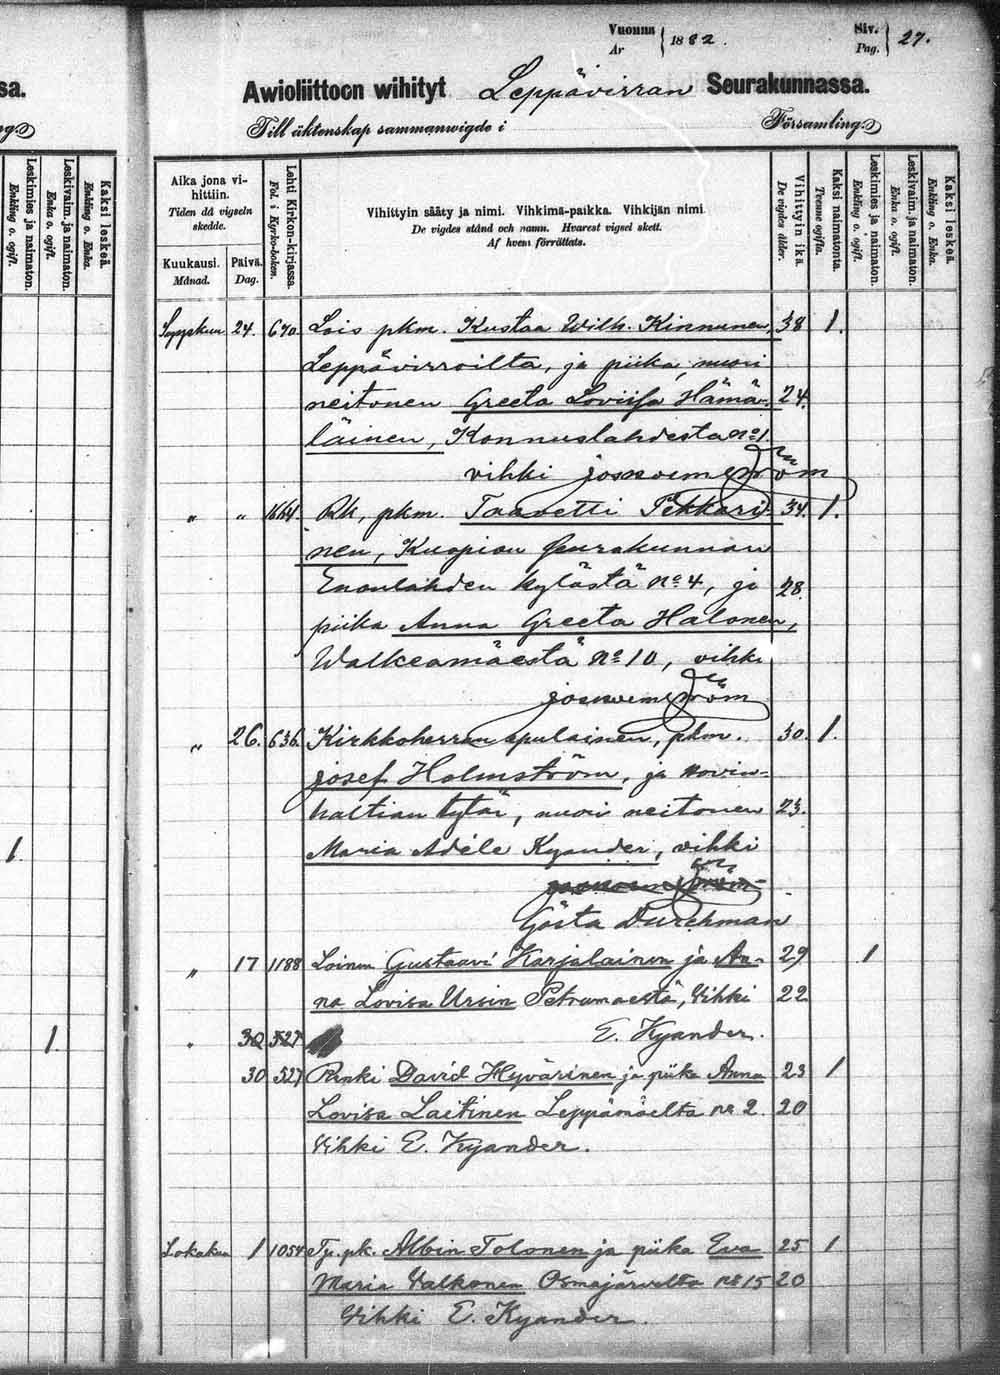 Vuonna
År
1882.
Siv.
Pag.
27.
sa.
Awioliittoon wihityt Leppävirran Seurakunnassa.
Till äktenskap sammanwigde i Församling.
Aika jona vihittiin.
Tiden då vigseln skedde.
Kuukausi.
Månad.
Päivä.
Dag.
Lehti Kirkon-kirjassa.
Fol. i Kyrko-boken.
Vihittyin sääty ja nimi. Vihkimä-paikka. Vihkijän nimi.
De vigdes stånd och namn. Hvarest vigsel skett.
Af hvem förrättats.
Vihittyin ikä.
De vigdes ålder.
Kaksi naimatonta.
Tvenne ogifta.
Leskimies ja naimaton.
Enkling o. ogift.
Leskivaim. ja naimaton.
Enka o. ogift.
Kaksi leskeä.
Enkling o. Enka.
Syyskuu 24. 670. Lois pkm. Kustaa Wilh. Kinnunen, 38 1.
Leppävirroilta, ja piika, nuori
neitonen Greeta Loviisa Hämä- 24.
läinen, Konnuslahdesta No 1
vihki
" " 1664. Rk, pkm. Taavetti Pekkari- 34. 1.
nen, Kuopion Seurakunnan
Enonlahden kylästä No 4, ja 28.
piika Anna Greeta Halonen,
Walkeamäestä No 10, vihki
" 26. 636. Kirkkoherran apulainen, pkm. 30. 1.
Josef Holmström, ja
haltian tytär, nuori neitonen 23.
Maria Adéle Kyander, vihki
Gösta Durchman
" 17 1188 Loinen Gustaavi Karjalainen ja An- 29 1
na Lovisa Ursin Petrumaestä, Vihki 22
30 527 E. Kyander.
30 527 Renki David Hyvärinen ja piika Anna 23 1
Lovisa Laitinen Leppämäelta no 2 20
Vihki E. Kyander.
Lokakuu 1 1054 Ty. pk. Albin Tolonen ja piika Eva 25 1
Maria Valkonen Osmajärvelta no 15 20
Vihki E. Kyander.